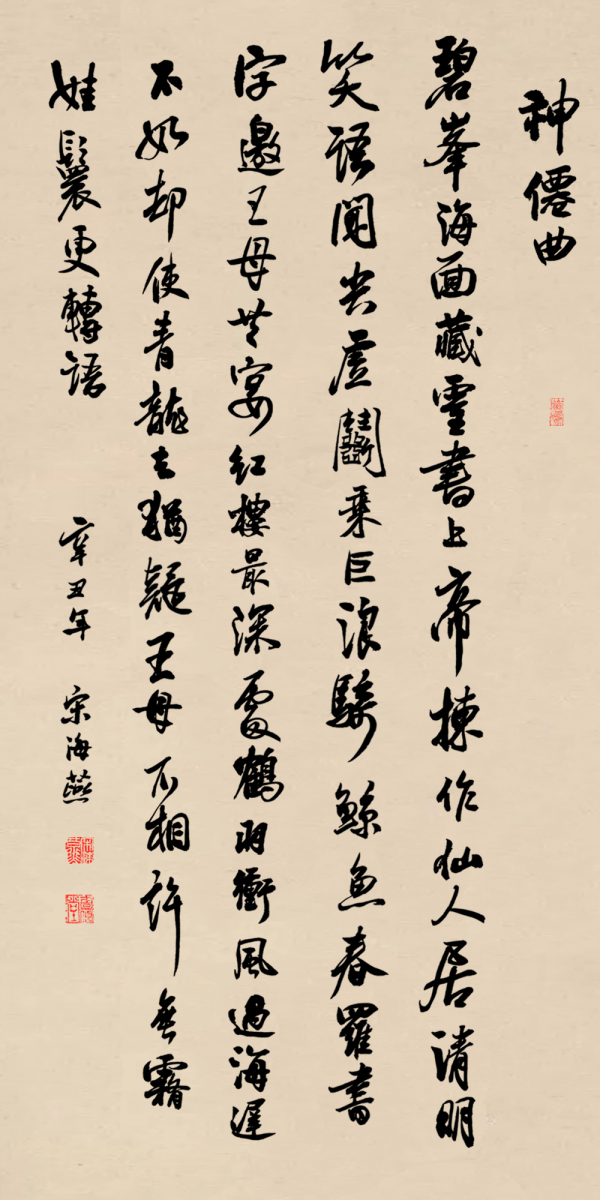 神僊曲
碧峯海面藏靈書上帝揀作仙人居清明
笑語聞空虛鬭乘巨浪騎鯨魚春羅書
字邀王母共宴紅樓最深處鶴羽衝風過海遲
不如却使青龍去猶疑王母不相許垂霧
娃鬟更轉語 辛丑年 宋海燕